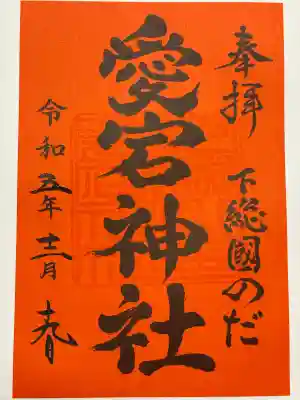 奉拝
下総國のだ
愛宕神社
令和五年十二月十九日